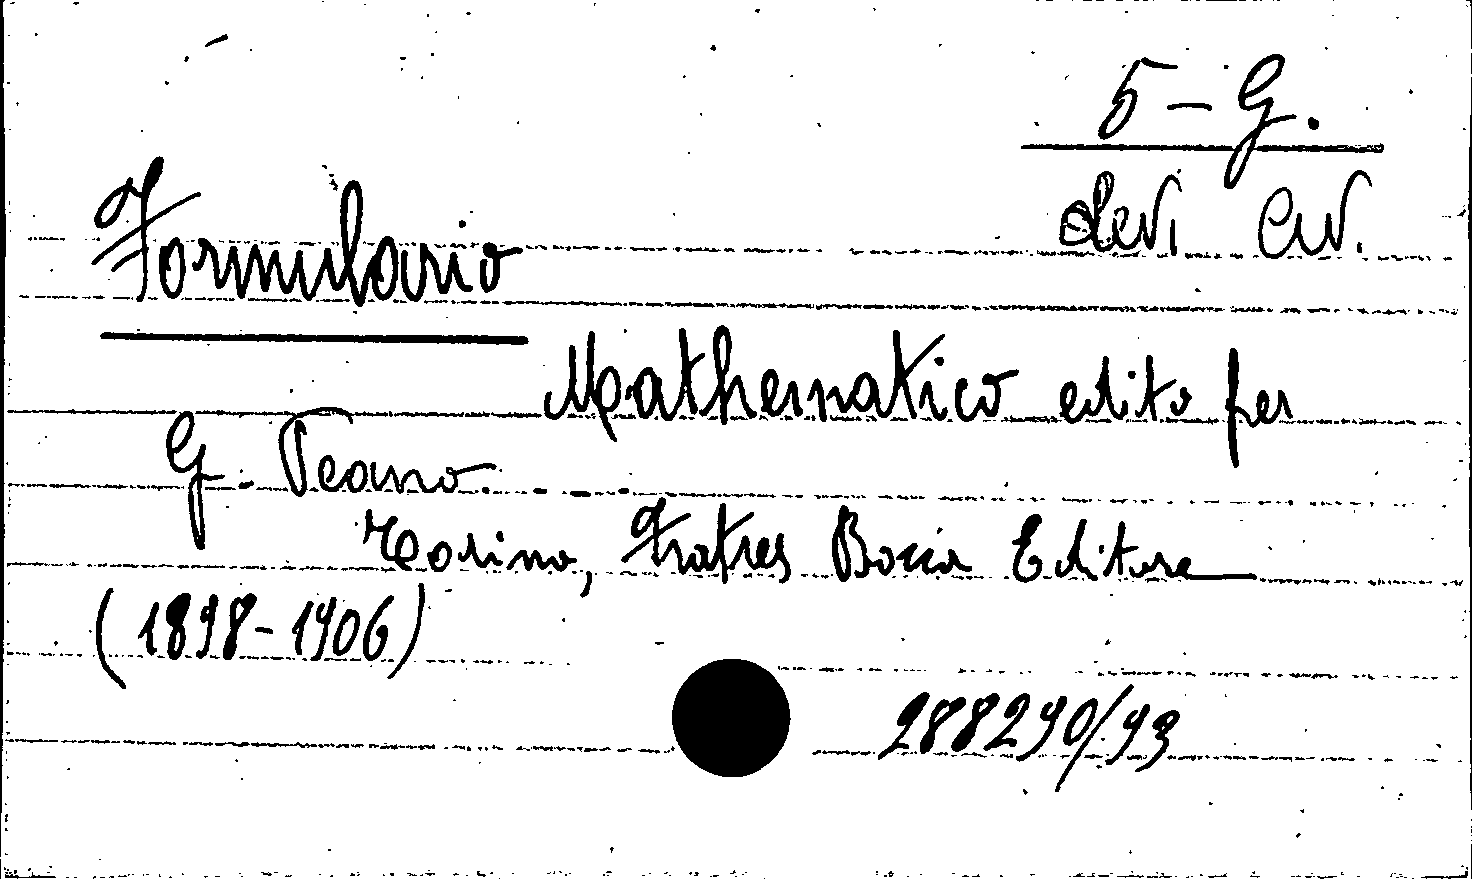 5-G.
Levi Civ.
Formulario
Mathematico edito per
G. Peano.
Torino, Fratres Bocca Editore
(1898-1906)
288290/93